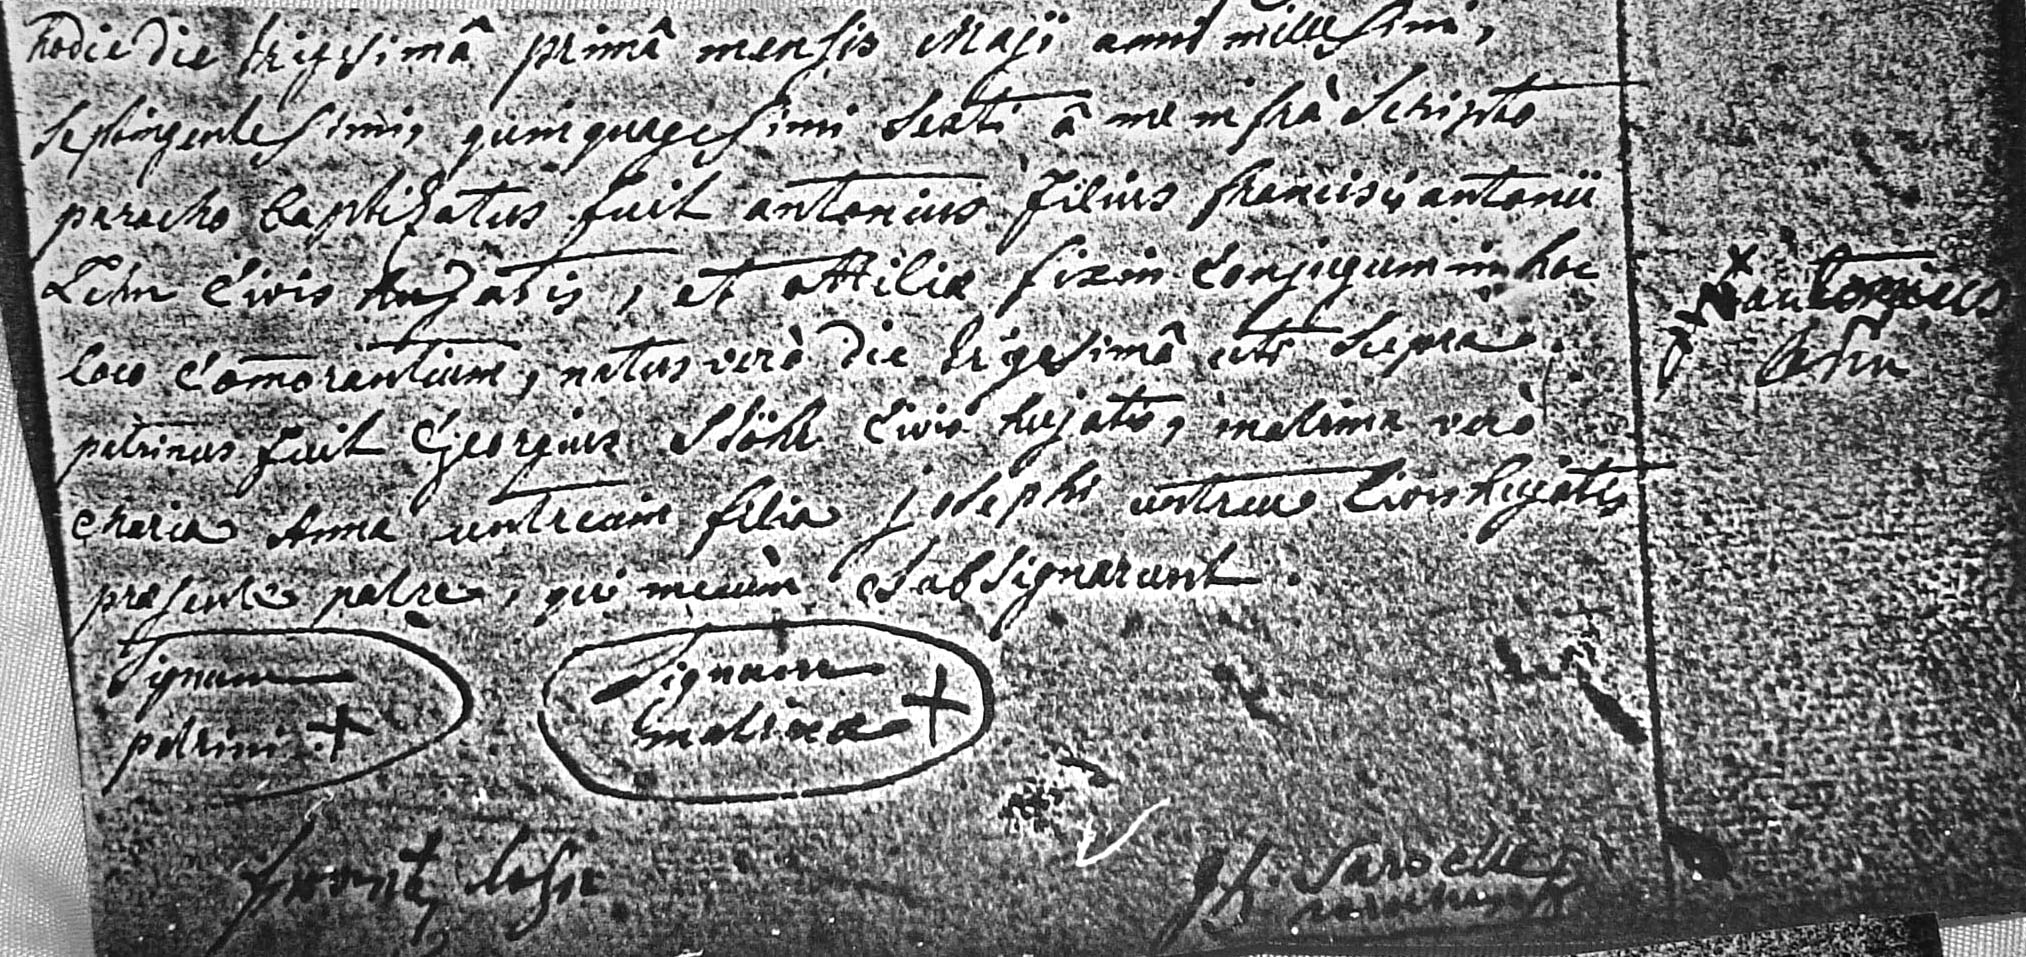 hodie die trigesimâ primâ mensis Maji anni millesimi,
septingentesimi, quinquagesimi sexti â me infrà scripto
parocho baptizatus fuit antonius filius francisci antonii
Lehn civis hujatis, et ottiliæ fixin conjugum in hoc
loco comorantium, natus verò die trigesimâ uti supra.
patrinus fuit Georgius Stöhr civis hujatis, matrina verò
Maria Anna untreüin filia josephi untreu civis hujatis
præsente patre, qui mecum subsignarunt.
antonius
Lehn
Signum
patrini +
Signum
matrinæ +
frantz lehn